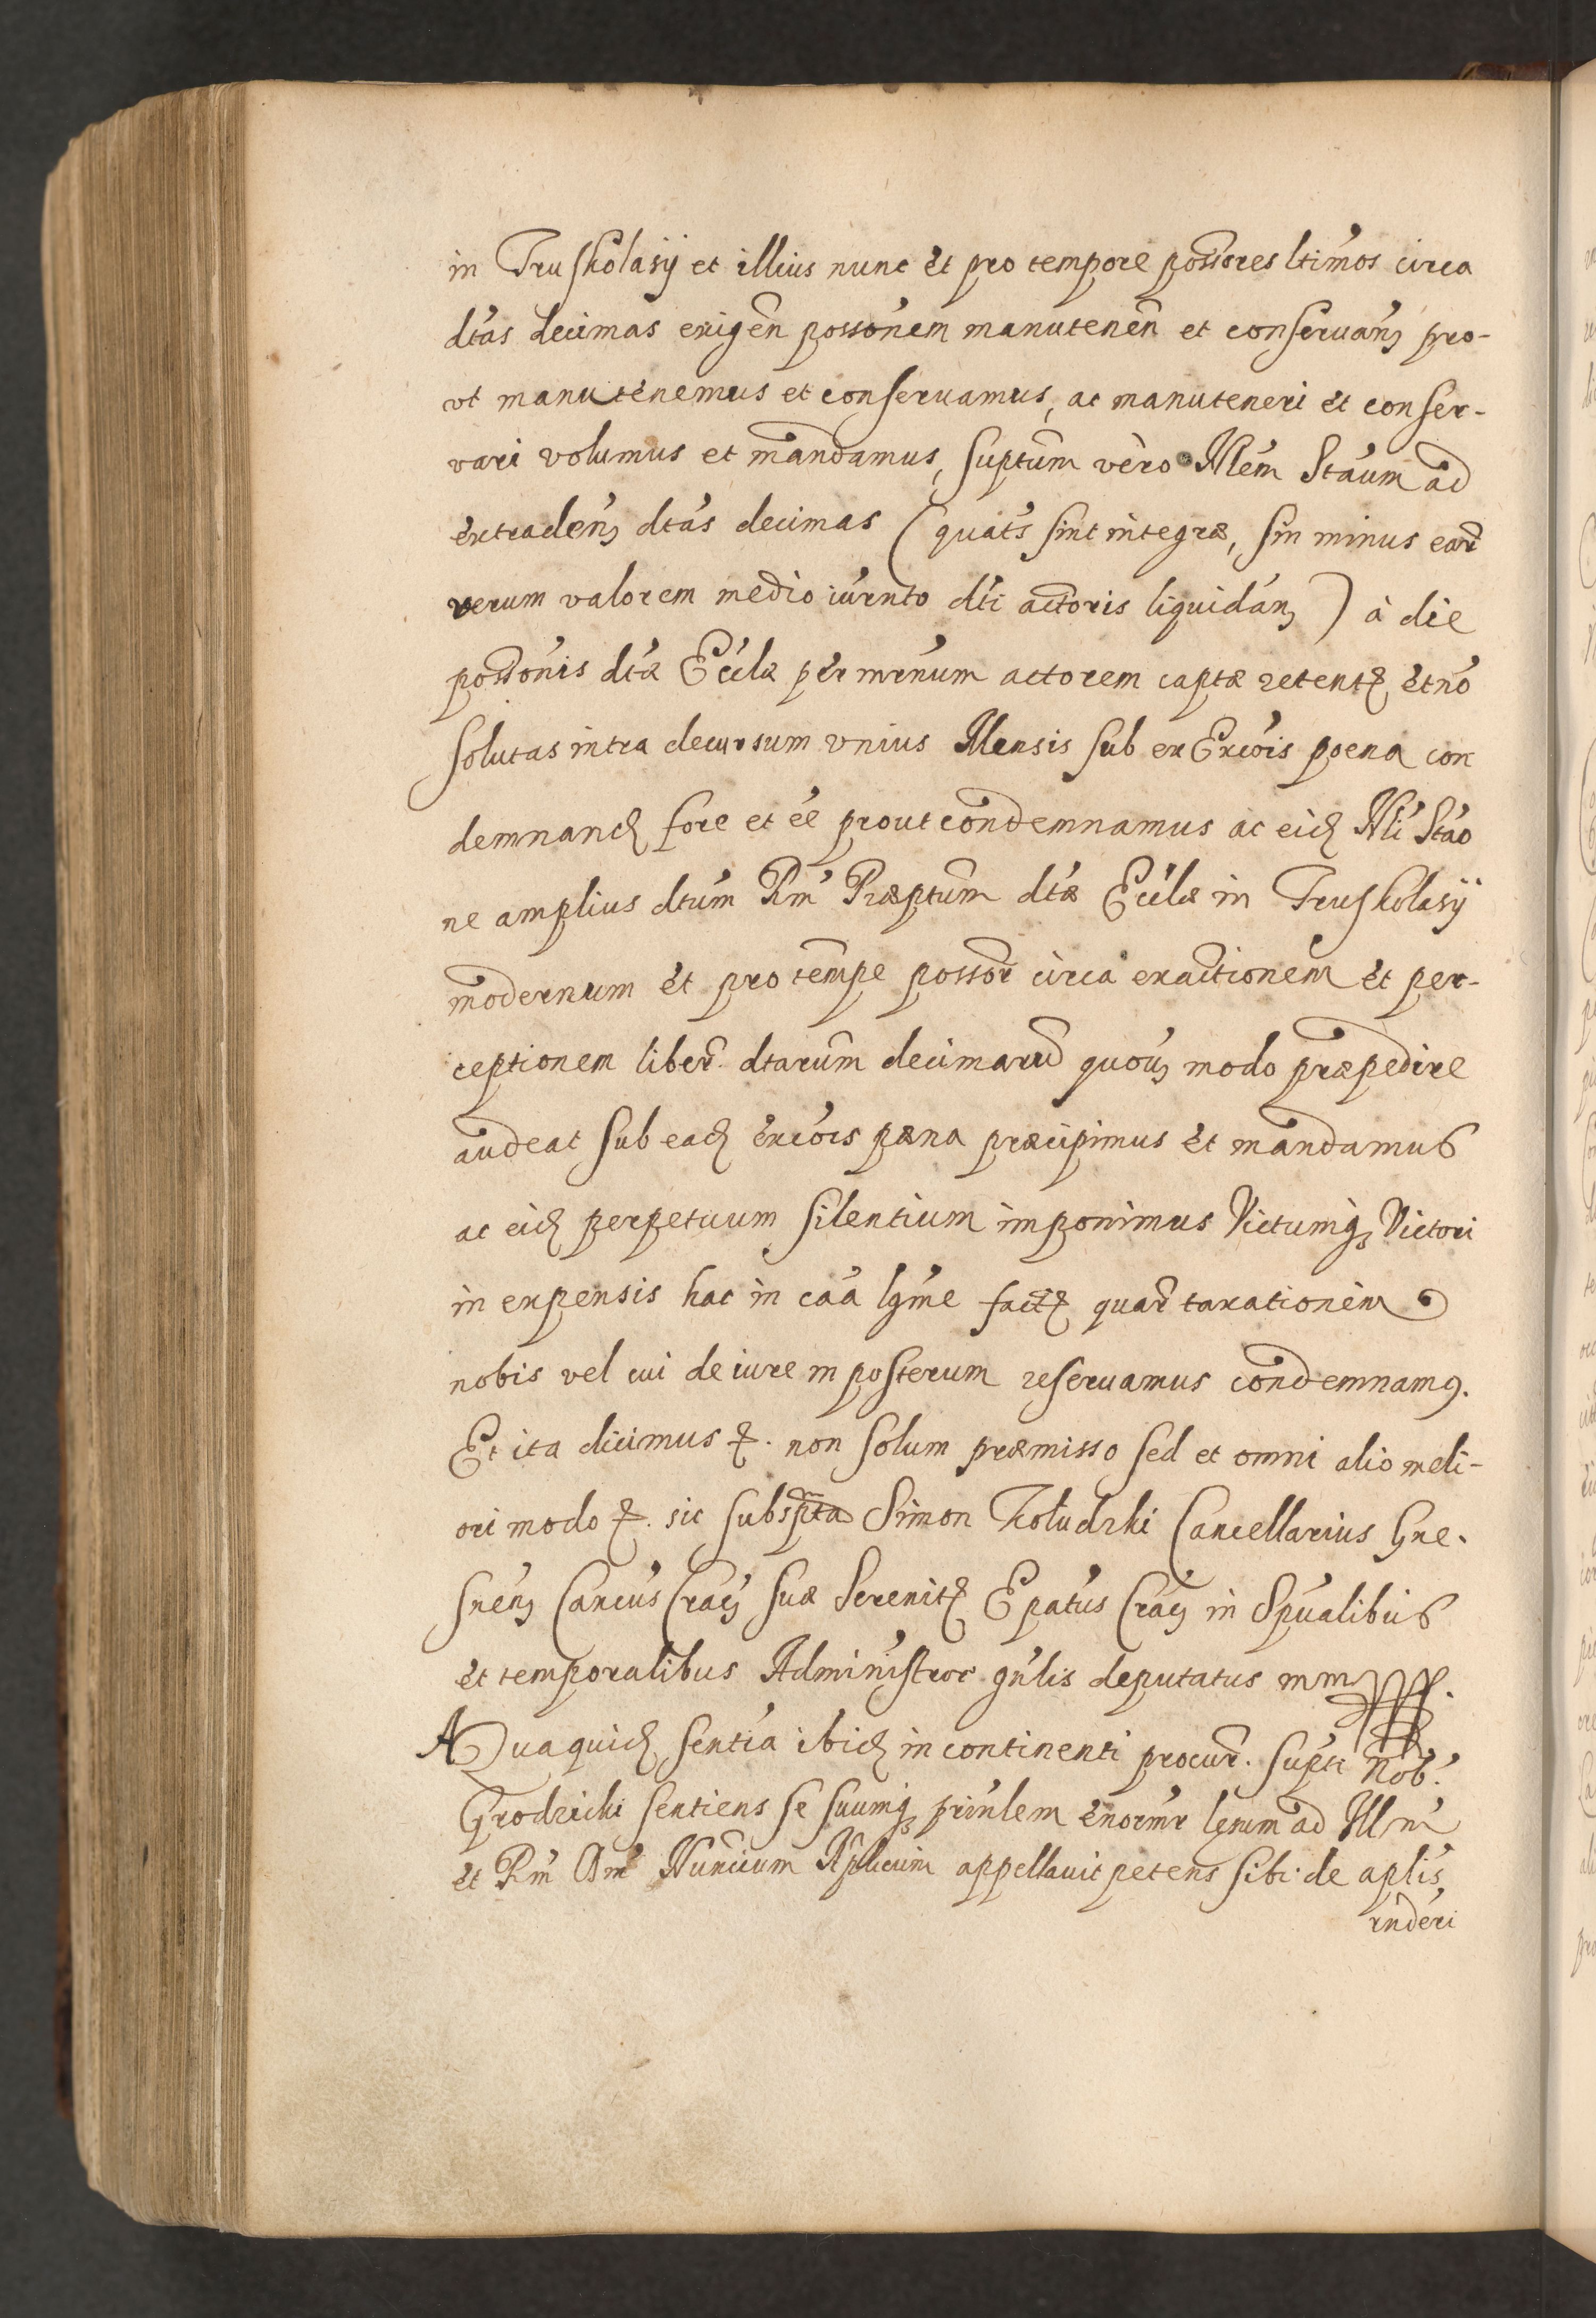 in Truskolasÿ et illius nunc et pro tempore possores ltimos circa
dtas decimas exigen possonem manutenen et conseruan pro-
vt manutenemus et conseruamus, ac manuteneri et conser-
vari volumus et mandamus, suptum vero Nlem Staum ad
extraden dtas decimas (quats sint integræ, sin minus ear
verum valorem medio iurnto dti actoris liquidan) à die
possonis dtæ Ecclæ per mrnum actorem captæ retent et no
solutas intra decursum vnius Mensis sub ex Excois poena con
demnand fore et ee prout condemnamus ac eid Nli Stao
ne amplius dtum Rm Præptum dtæ Ecclæ in Truskolasÿ
modernum et pro tempe possor circa exactionem et per-
ceptionem liber. dtarum decimaru quouis modo præpedire
audeat sub ead excois pæna præcipimus et mandamus
ac eid perpetuum silentium imponimus Victumq Victori
in expensis hac in caa lgme fact quar taxationem
nobis vel cui de iure in posterum reseruamus condemnamq.
Et ita dicimus &. non solum præmisso sed et omni alio meli-
ori modo &. sic subspta Simon Kołudzki Cancellarius Gne-
snen Cancus Crac suæ Serenit Epatus Crac in Spualibus
et temporalibus Administror gnlis deputatus mm
A Qua quid sentia ibid in continenti procur. supti Nob.
Grodzicki sentiens se suumq prinlem enormr lęsum ad Illm
et Rm Dm Nuncium Aplicum appellauit petens sibi de aplis
rnderi